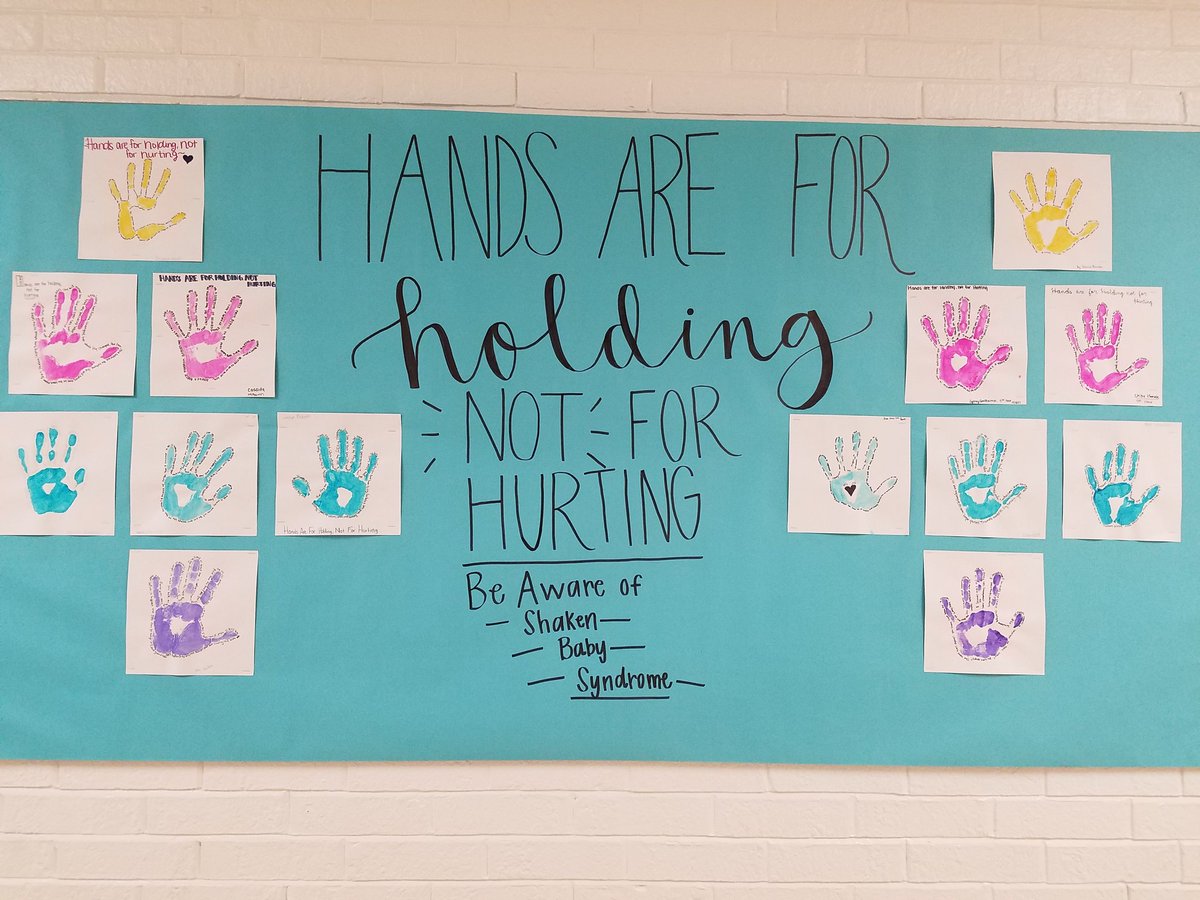 HANDS ARE FOR
holding
NOT FOR
HURTING
Be Aware of
Shaken
Baby
Syndrome
Hands are for holding, not
for hurting
HANDS ARE FOR HOLDING NOT
HURTING
Hands Are For Holding Not For Hurting
Hands are for holding, not for hurting
Hands are for holding not for
hurting